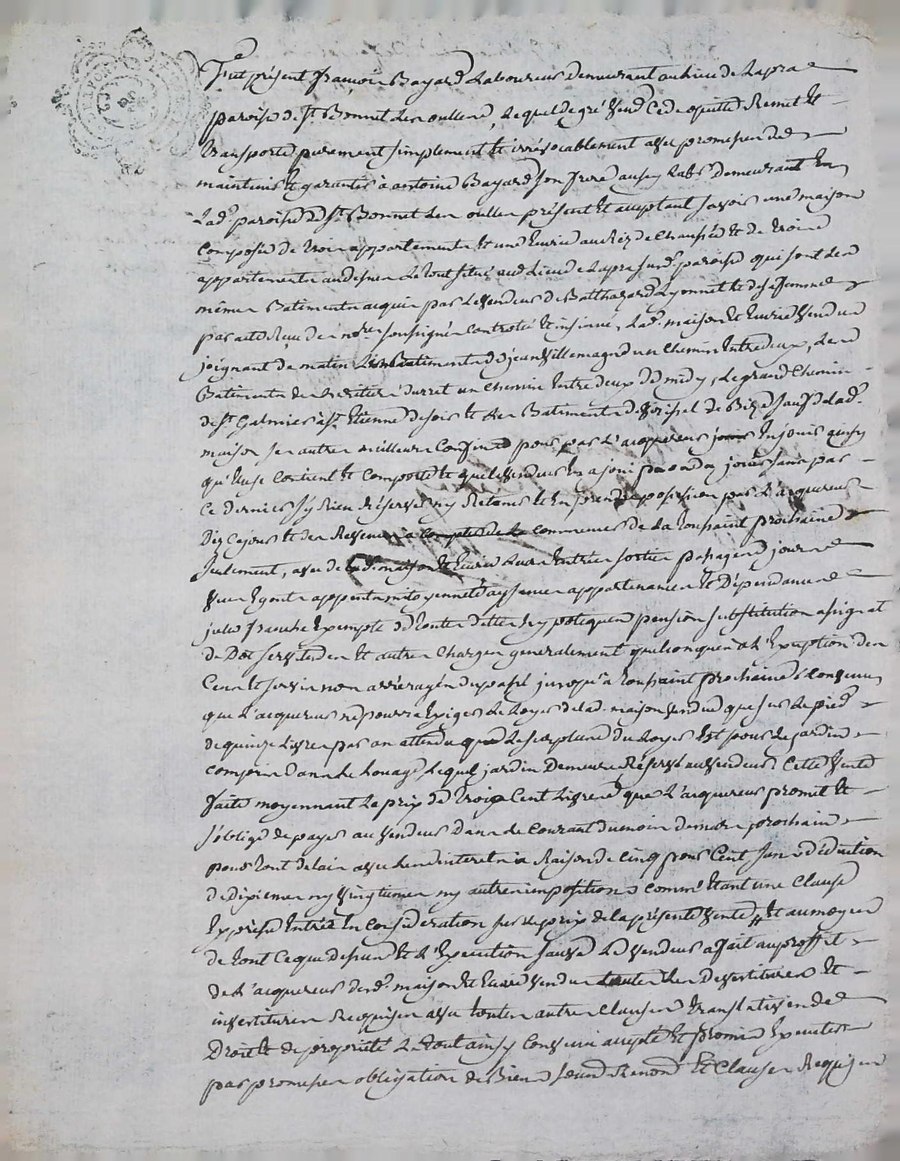 LYON
Fut présent françois Bayard Laboureur demeurant au lieu de Lapra
paroisse de St Bonnet Les oulles, Lequel de gré vend Cede quitte Remet Et
transporte purement simplement Et irrévocablement avec promesse de
maintenir Et garantir à antoine Bayard son frere aussy Labr demeurant En
Lad. paroisse de St Bonnet Les oulles présent Et acceptant savoir une maison
Composée de trois appartements Et une Ecurie au Rez de Chaussée Et de trois
appartements au dessus Le tout situé aud. Lieu de Lapra susd. paroisse qui sont des
même Batiments acquis par Le vendeur de Balthazard Lyonnet Et de sa femme
par acte Reçu de no.re soussigné Controlé Et insinué, Lad. maison Et Ecurie vendue
joignant de matin Les Batiments de jean villemagne un Chemin Entre deux, Les
Batiments des heritiers durret un Chemin Entre deux de midy, Le grand Chemin
de St Galmier à St Etienne de soir Et Les Batiments de de Bize sauf de lad.
maison ses autres meilleurs Confins pour par L'acquereur En jouir ainsy
qu'Elle Contient Et Comporte Et que Le vendeur En a joui ou dû jouir sans par
Ce dernier s'y Rien réserver ny Retenir Et En prendre possession par L'acquereur
Dez Ce jour Et des Revenus a Commencer de La toussaint prochaine
seulement, avec de lad. maison Et Ecurie Leurs Entrées sorties passages jours
vues Egouts appents mitoyennetés aysances appartenances Et Dépendances
icelles franche Exempte de toutes dettes hypoteques pension substitution assignat
de Dot servitudes Et autres Charges generalement quelconques à L'Exception des
Cens Et servis non arréragés du passé jusqu'à toussaint prochaine, Convenu
que L'acquereur ne pourra Exiger Le Loyer de lad. maison vendue que sur Le pied
de quinze Livres par an attendu que Le surplus du Loyer Est pour Le jardin
Compris Dans Le Louage Lequel jardin Demeure Réservé au vendeur. Cette vente
faite moyennant Le prix de trois Cent Livres que L'acquereur promet Et
s'oblige de payer au vendeur Dans Le Courant du mois de mars prochain
pour tout delai avec Les interets à Raison de Cinq pour Cent sans déduction
de dixiemes ny vingtiemes ny autres impositions Comme Etant une Clause
Expresse Entrée En Consideration sur Le prix de la présente vente Et au moyen
de tout Ce que dessus Et L'Execution sauve Le vendeur a fait au proffit
de L'acquereur desd. maison Et Ecurie vendue toutes Les Devestitures Et
investitures Requises avec toutes autres Clauses translatives de
Droit Et de propriété Le tout ainsy Convenu accepté Et promis Executer
par promesses obligation de Biens Renon. Et Clauses Requises